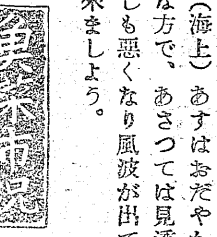 （海上）あすはおだやか
な方で、あさつては見透
しも悪くなり風波が出て
来ましよう。